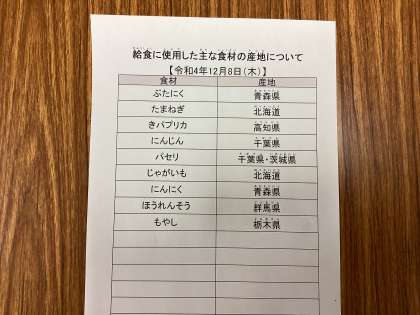 給食に使用した主な食材の産地について
【令和4年12月8日(木)】
食材 産地
ぶたにく 青森県
たまねぎ 北海道
きパプリカ 高知県
にんじん 千葉県
パセリ 千葉県・茨城県
じゃがいも 北海道
にんにく 青森県
ほうれんそう 群馬県
もやし 栃木県